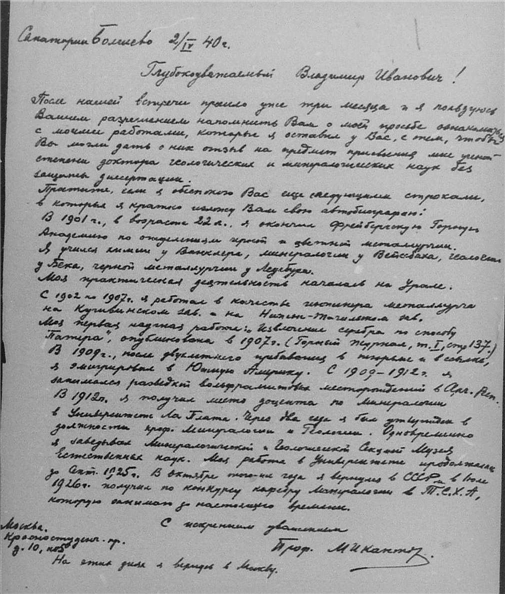 Санатории Болшево 2/IV 40 г.
Глубокоуважаемый Владимир Иванович!
После нашей встречи прошло уже три месяца и я пользуюсь
Вашим разрешением напомнить Вам о моей просьбе ознакомиться
с моими работами, которые я оставил у Вас, с тем, чтобы
Вы могли дать о них отзыв на предмет присвоения мне ученой
степени доктора геологических и минералогических наук без
защиты диссертации.
Простите, если я обеспокою Вас еще следующими строками,
в которых я кратко изложу Вам свою автобиографию:
В 1901 г., в возрасте 22 л., я окончил Фрейбергскую Горную
Академию по отделениям и цветной металлургии.
Я учился химии у Винклера, минералогии у Вейсбаха, геологии
у Бека, горной металлургии у Ледебура.
Моя практическая деятельность началась на Урале.
С 1902 по 1907 г. я работал в качестве инженера металлурга
на Кушвинском зав. и на Нижне-Тагильском зав.
Моя первая научная работа: Извлечение серебра по способу
Патера", опубликована в 1907 г. (Горный журнал, т. I, стр 137.)
В 1909 г., после двухлетнего пребывания в тюрьме и в ссылке,
я эмигрировал в Южную Америку. С 1909-1912 г. я
занимался разведкой вольфрамитовых месторождений в Арг. Респ.
В 1912 г. я получил место доцента по минералогии
в Университете Ла Плата. Через два года я был утвержден в
должности проф. Минералогии и Геологии. Одновременно
я заведывал Минералогической и Геологической Секцией Музея
Естественных наук. Моя работа в Университете продолжалась
до Сент. 1925 г. В октябре того-же года я вернулся в СССР и в
1926 г. получил по конкурсу кафедру Минералогии в Т.С.Х.А,
которую занимаю до настоящего времени.
С искренним уважением
Проф. М Кантор.
Москва.
Красностуденч. пр.
д. 10,
На этих днях я вернусь в Москву.